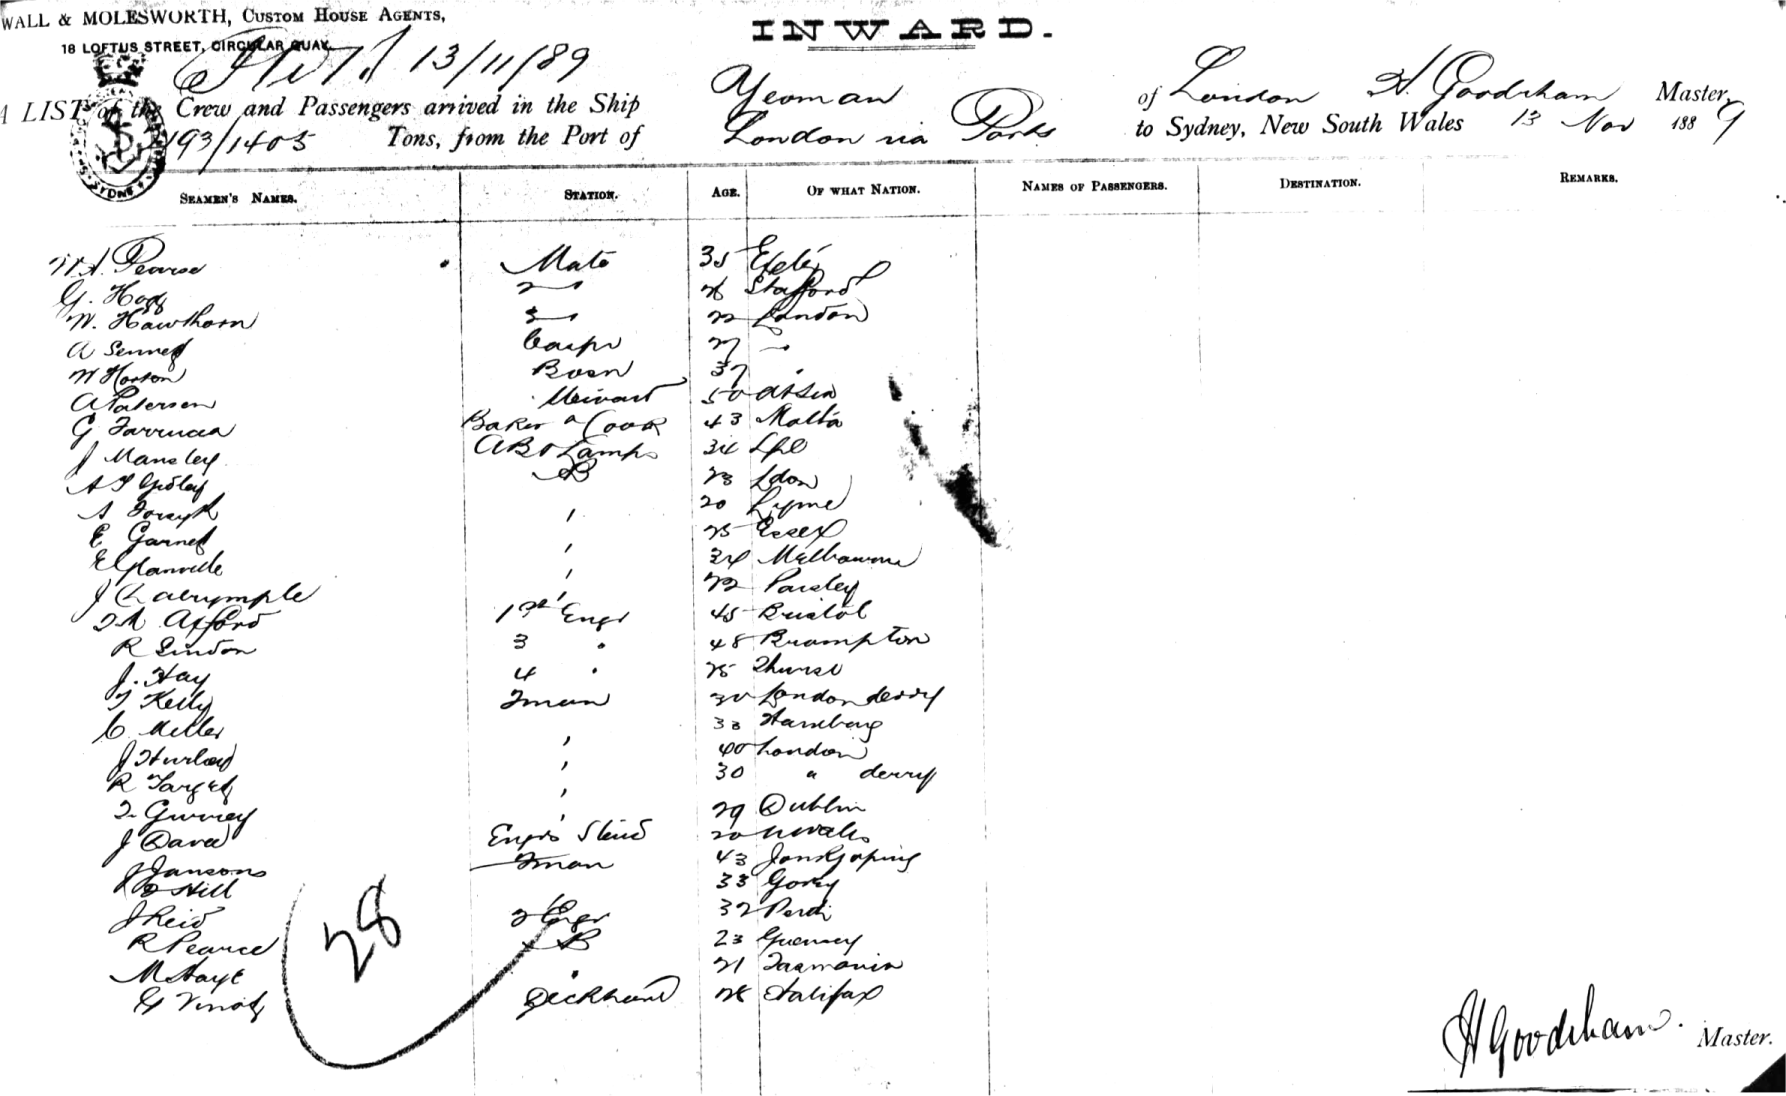 WALL & MOLESWORTH, CUSTOM HOUSE AGENTS,
18 LOFTUS STREET, CIRCULAR QUAY.
INWARD.
13/11/89
A LIST of the Crew and Passengers arrived in the Ship Yeoman of London H. Goodsham Master,
193/1405 Tons, from the Port of London via Ports to Sydney, New South Wales 13 Nov 1889
SEAMEN'S NAMES. STATION. AGE. OF WHAT NATION. NAMES OF PASSENGERS. DESTINATION. REMARKS.
Pearse Mate 35 Exeter
G. Hogg 2 26 Stafford
W. Hawthorn 3 22 London
A Sennet Carpr 27
W Horton Bosn 37
A Patersen 50
G Farrugia Baker & Cook 43 Malta
J Mansley AB & Lamps 34 Lpl
AB 23 Ldon
A Forsyth 20 Lyme
E Garnet 25 Essex
E Glanville 34 Melbourne
J Dalrymple 22 Paisley
Afford 1st Engr 45 Bristol
R Lindon 3 48 Brampton
J. Hay 4 25
T Kelly Fman 30 Londonderry
C. Miller 33 Hamburg
J Hurley 40 London
R Target 30 " derry
T. Gurney 29 Dublin
J Engrs 20 N Wales
J Jansons Fman 43 Jonkjoping
Hill 33 Gorey
J Reid 2 Engr 32
R Pearce AB 23 Guernsey
M Hays 21 Tasmania
G Deckhand 28 Halifax
28
H Goodsham. Master.